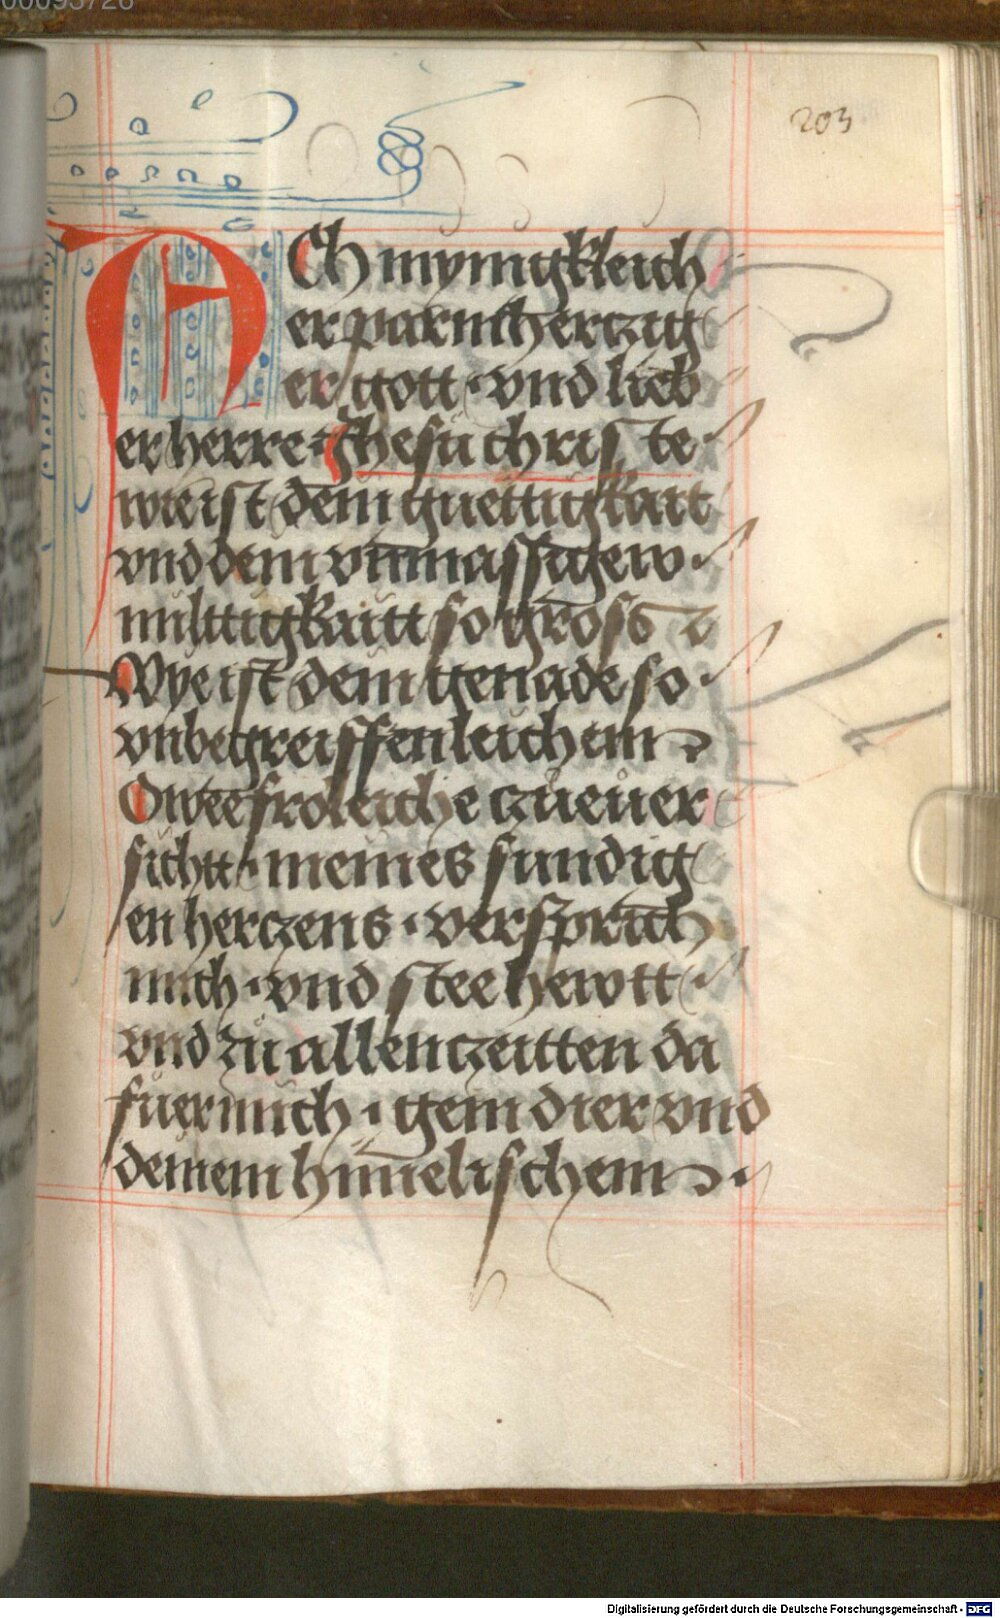 00095726
203
ACh mynigkleich
er parmherczig
er gott · vnd lieb
er herre · Jhesu christe
wie ist dein guettigkait
vnd dein vnmassigew
milttigkaitt so gross
Wye ist dein genade so
vnbegreiffenleichenn
O wee froleiche czu̍ever
sichtt · meines sundig
en herczens · versprich
mich · vnd stee hewtt
vnd zu allen czeitten da
fuer mich · gein dier vnd
deinem himelischem
Digitalisierung gefördert durch die Deutsche Forschungsgemeinschaft - DFG